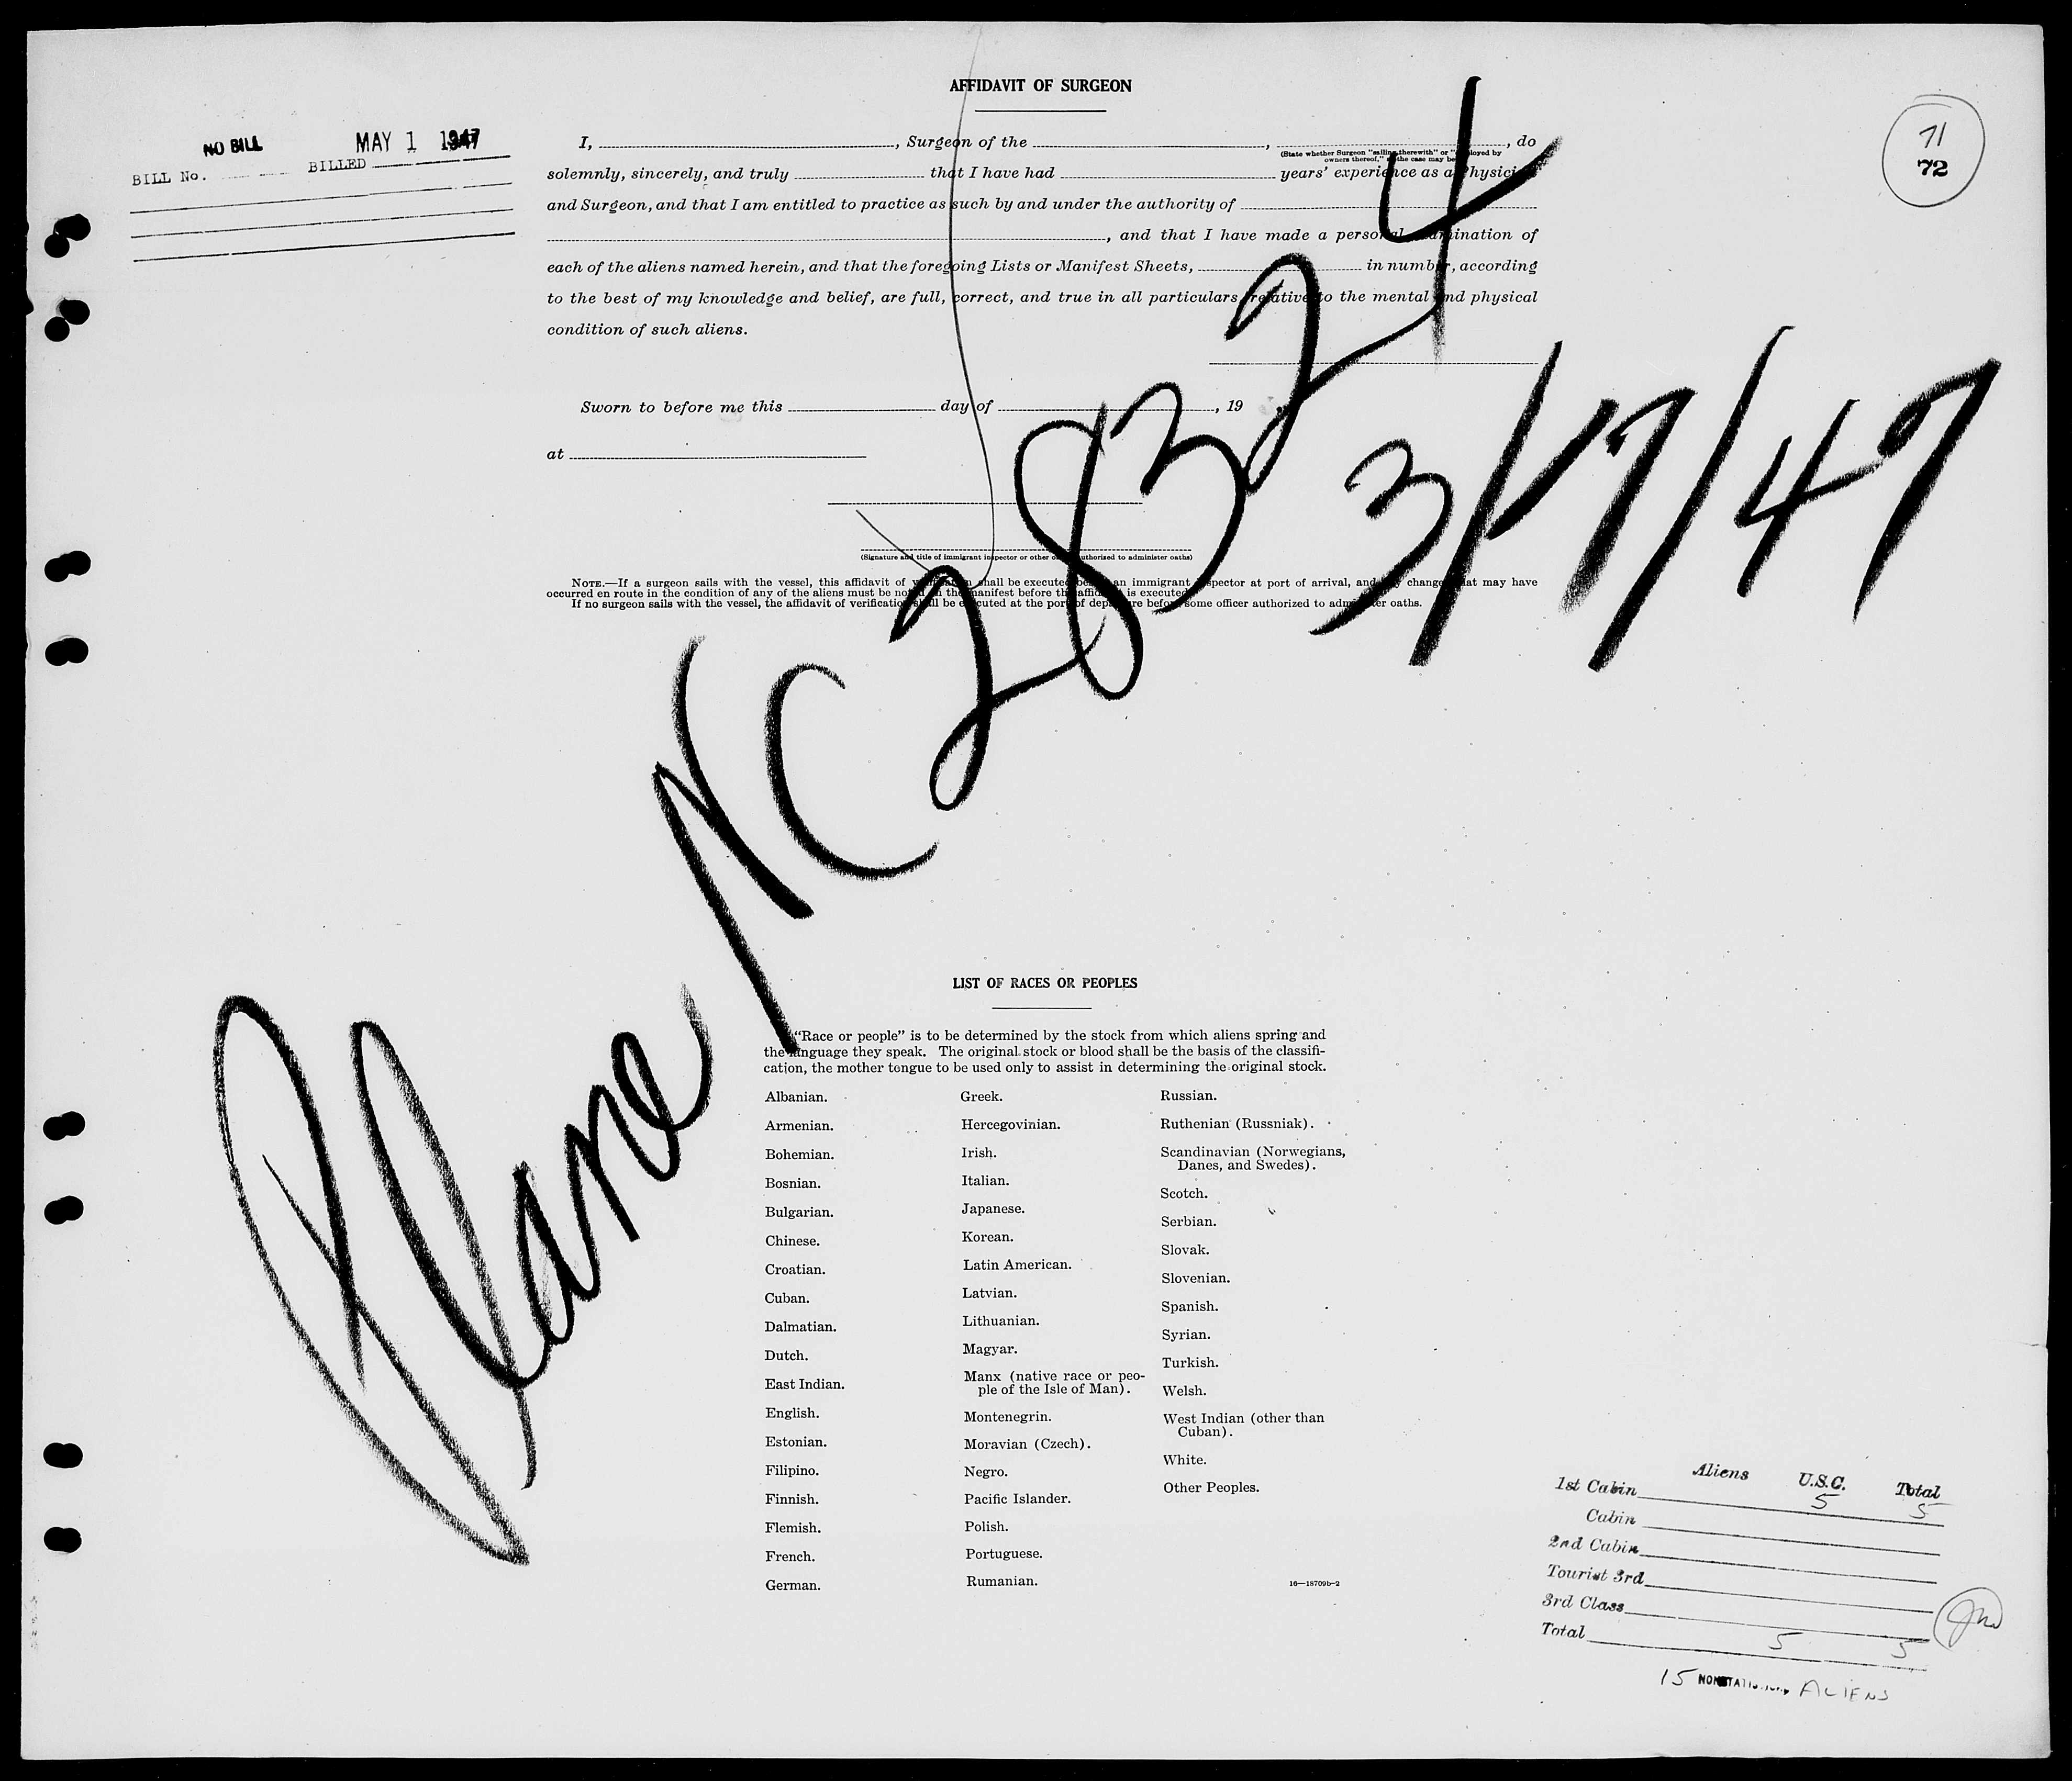 AFFIDAVIT OF SURGEON
71
72
NO BILL MAY 1 1947
BILL No. BILLED
I, , Surgeon of the , , do
(State whether Surgeon "sailing therewith" or "employed by
owners thereof," as the case may be)
solemnly, sincerely, and truly that I have had years' experience as a Physician
and Surgeon, and that I am entitled to practice as such by and under the authority of
, and that I have made a personal examination of
each of the aliens named herein, and that the foregoing Lists or Manifest Sheets, in number, according
to the best of my knowledge and belief, are full, correct, and true in all particulars relative to the mental and physical
condition of such aliens.
Sworn to before me this day of , 19
at
(Signature and title of immigrant inspector or other officer authorized to administer oaths)
NOTE.—If a surgeon sails with the vessel, this affidavit of verification shall be executed before an immigrant inspector at port of arrival, and any changes that may have
occurred en route in the condition of any of the aliens must be noted on the manifest before the affidavit is executed.
If no surgeon sails with the vessel, the affidavit of verification shall be executed at the port of departure before some officer authorized to administer oaths.
Plane NC 28324
3/17/47
LIST OF RACES OR PEOPLES
"Race or people" is to be determined by the stock from which aliens spring and
the language they speak. The original stock or blood shall be the basis of the classifi-
cation, the mother tongue to be used only to assist in determining the original stock.
Albanian.
Armenian.
Bohemian.
Bosnian.
Bulgarian.
Chinese.
Croatian.
Cuban.
Dalmatian.
Dutch.
East Indian.
English.
Estonian.
Filipino.
Finnish.
Flemish.
French.
German.
Greek.
Hercegovinian.
Irish.
Italian.
Japanese.
Korean.
Latin American.
Latvian.
Lithuanian.
Magyar.
Manx (native race or peo-
ple of the Isle of Man).
Montenegrin.
Moravian (Czech).
Negro.
Pacific Islander.
Polish.
Portuguese.
Rumanian.
Russian.
Ruthenian (Russniak).
Scandinavian (Norwegians,
Danes, and Swedes).
Scotch.
Serbian.
Slovak.
Slovenian.
Spanish.
Syrian.
Turkish.
Welsh.
West Indian (other than
Cuban).
White.
Other Peoples.
16—18709b-2
Aliens U.S.C. Total
1st Cabin 5 5
Cabin
2nd Cabin
Tourist 3rd
3rd Class
Total 5 5
15 ALIENS